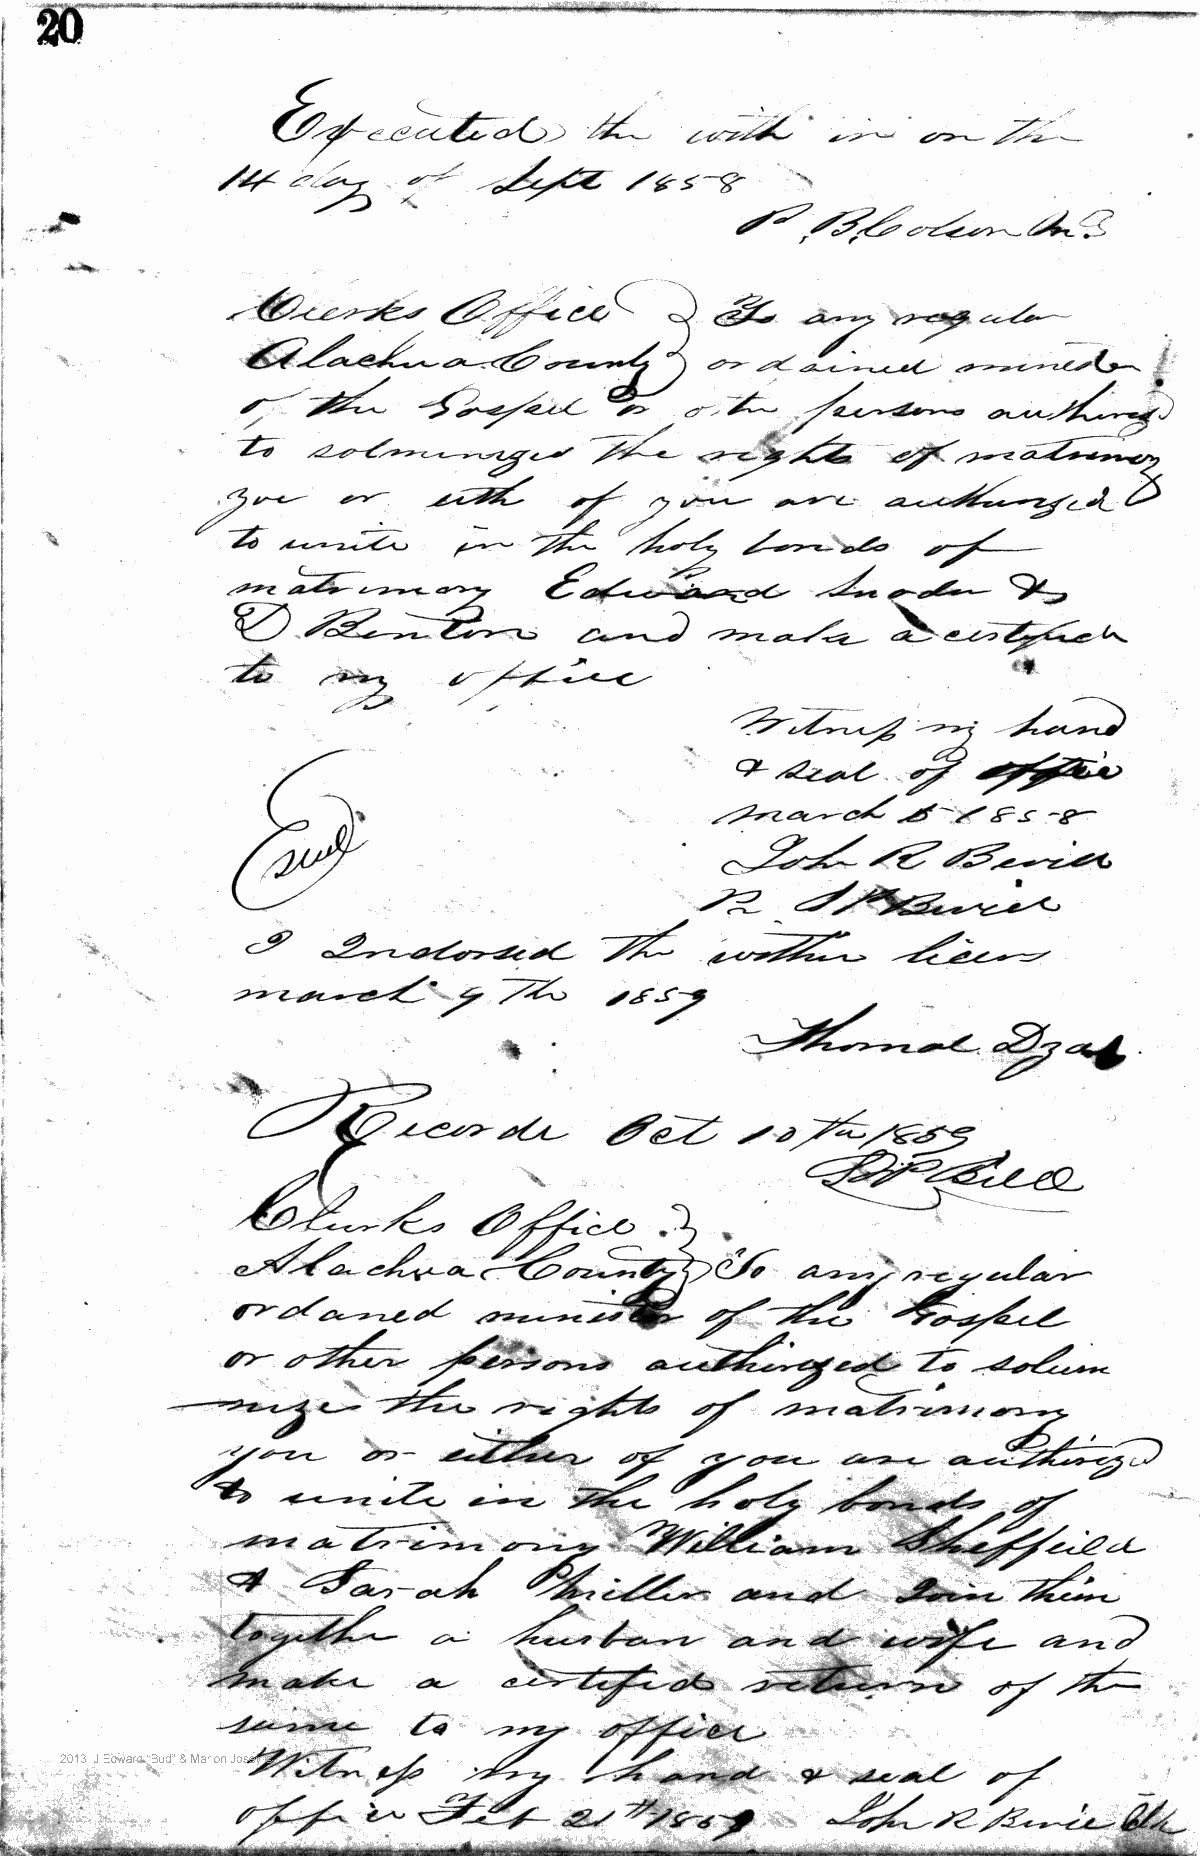 20
Executed the with in on the
14 day of Sept 1858
P. B. Colson M.G
Clerks Office } To any regular
Alachua County } ordained minister
of the Gospel or othe persons authirezd
to solmenizes the rights of matrimony
you or eith of you are authurized
to unite in the holy bonds of
matrimony Edward &
D Benton and make a
to my office
Witness my hand
& seal of office
march 5 1858
John R Bevill
Seal
I Indorsed the within licens
march 9 th 1859
Thomas
Recorde Oct 10th 1859
Clurks Office }
Alachua County } To any regular
ordaned minister of the Gospel
or other persons authirezed to solium
nize the rights of matrimony
you or either of you are authirezd
to unite in the holy bonds of
matrimony William Sheffeild
& Sarah Miller and Join them
togethe a husban and wife and
make a certified return of the
same to my office
2013 J Edward "Bud" & Marion
Witness my hand & seal of
office Feb 21th 1859 John R Bevill Clk